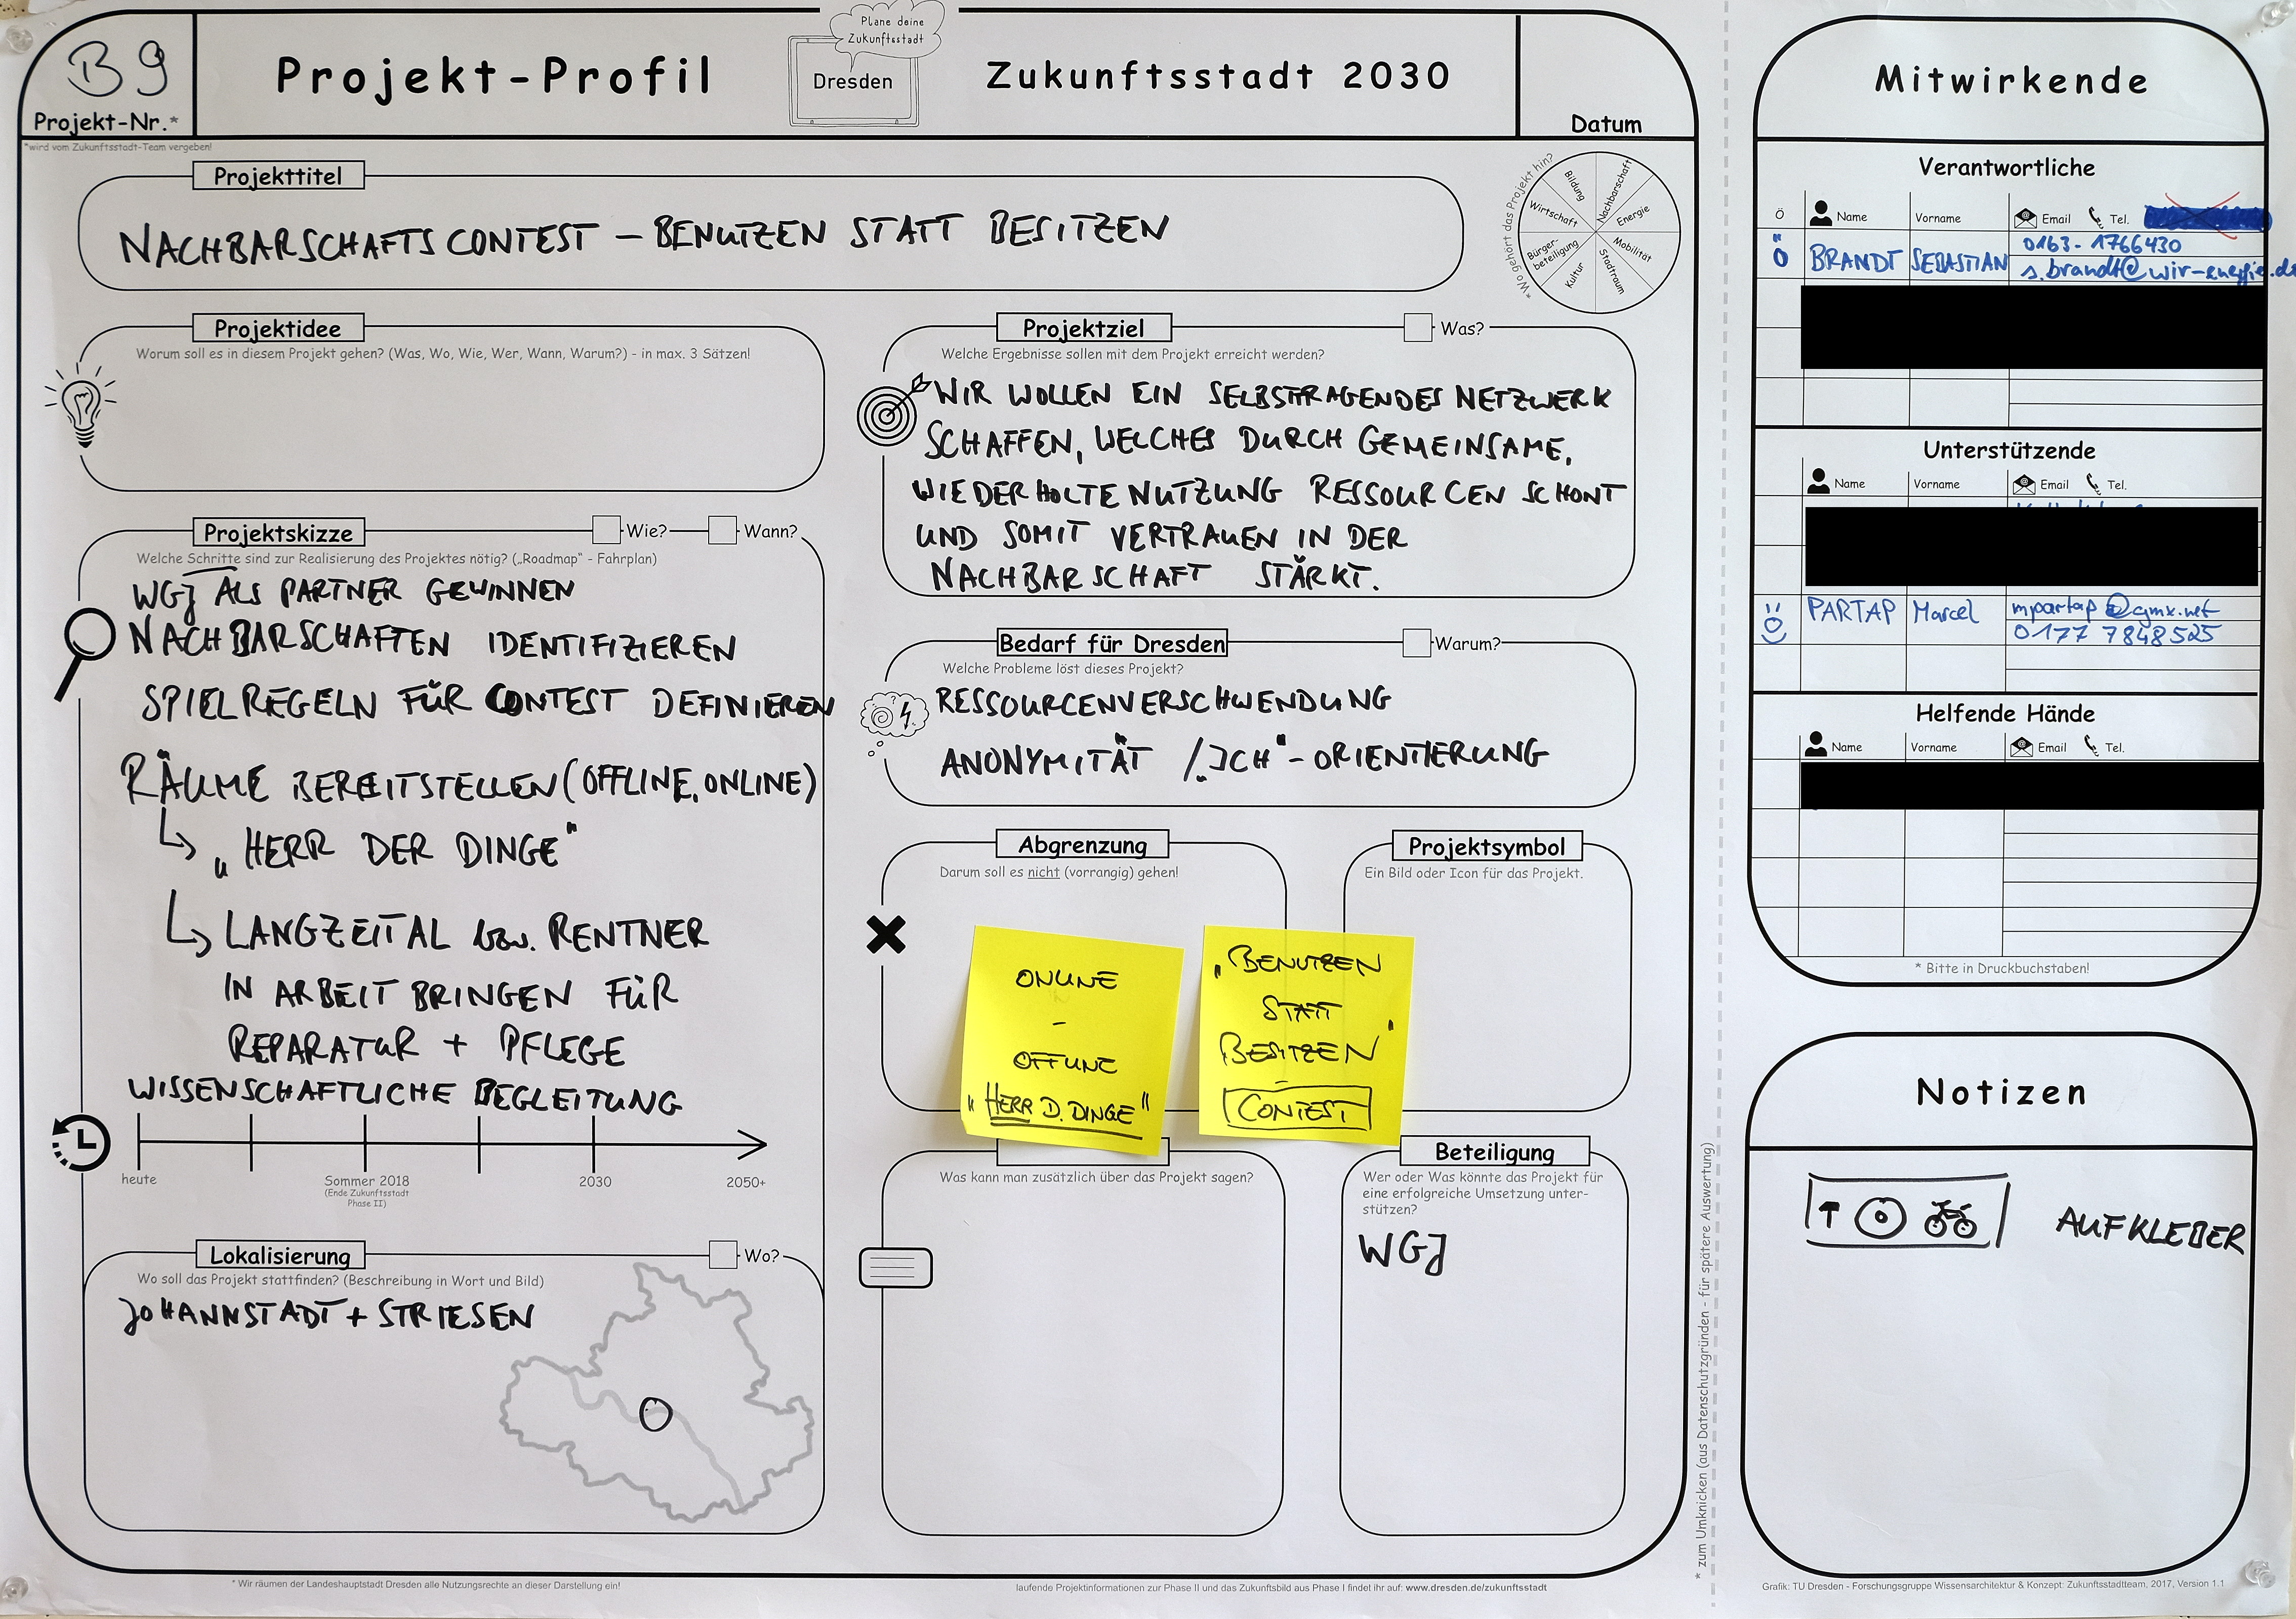 B9
Projekt-Nr.*
*wird vom Zukunftsstadt-Team vergeben!
Projekt-Profil
Plane deine
Zukunftsstadt
Dresden
Zukunftsstadt 2030
Datum
Projekttitel
NACHBARSCHAFTSCONTEST – BENUTZEN STATT BESITZEN
*Wo gehört das Projekt hin?
Bildung
Nachbarschaft
Energie
Mobilität
Stadtraum
Kultur
Bürger-
beteiligung
Wirtschaft
Projektidee
Worum soll es in diesem Projekt gehen? (Was, Wo, Wie, Wer, Wann, Warum?) - in max. 3 Sätzen!
Projektskizze
Wie?
Wann?
Welche Schritte sind zur Realisierung des Projektes nötig? („Roadmap" - Fahrplan)
WGJ ALS PARTNER GEWINNEN
NACHBARSCHAFTEN IDENTIFIZIEREN
SPIELREGELN FÜR CONTEST DEFINIEREN
RÄUME BEREITSTELLEN (OFFLINE, ONLINE)
„HERR DER DINGE"
LANGZEITAL bzw. RENTNER
IN ARBEIT BRINGEN FÜR
REPARATUR + PFLEGE
WISSENSCHAFTLICHE BEGLEITUNG
heute
Sommer 2018
(Ende Zukunftsstadt
Phase II)
2030
2050+
Lokalisierung
Wo?
Wo soll das Projekt stattfinden? (Beschreibung in Wort und Bild)
JOHANNSTADT + STRIESEN
Projektziel
Was?
Welche Ergebnisse sollen mit dem Projekt erreicht werden?
WIR WOLLEN EIN SELBSTRAGENDES NETZWERK
SCHAFFEN, WELCHES DURCH GEMEINSAME,
WIEDERHOLTE NUTZUNG RESSOURCEN SCHONT
UND SOMIT VERTRAUEN IN DER
NACHBARSCHAFT STÄRKT.
Bedarf für Dresden
Warum?
Welche Probleme löst dieses Projekt?
RESSOURCENVERSCHWENDUNG
ANONYMITÄT / „ICH"-ORIENTIERUNG
Abgrenzung
Darum soll es nicht (vorrangig) gehen!
Projektsymbol
Ein Bild oder Icon für das Projekt.
ONLINE
-
OFFLINE
"HERR D. DINGE"
„BENUTZEN
STATT
BESITZEN"
-
CONTEST
Was kann man zusätzlich über das Projekt sagen?
Beteiligung
Wer oder Was könnte das Projekt für
eine erfolgreiche Umsetzung unter-
stützen?
WGJ
* Wir räumen der Landeshauptstadt Dresden alle Nutzungsrechte an dieser Darstellung ein!
laufende Projektinformationen zur Phase II und das Zukunftsbild aus Phase I findet ihr auf: www.dresden.de/zukunftsstadt
* zum Umknicken (aus Datenschutzgründen - für spätere Auswertung)
Mitwirkende
Verantwortliche
Ö Name Vorname Email Tel.
0163-1766430
Ö BRANDT SEBASTIAN
s.brandt@wir-energie.de
Unterstützende
Name Vorname Email Tel.
PARTAP Marcel mpartap@gmx.net
0177 7848525
Helfende Hände
Name Vorname Email Tel.
* Bitte in Druckbuchstaben!
Notizen
AUFKLEBER
Grafik: TU Dresden - Forschungsgruppe Wissensarchitektur & Konzept: Zukunftsstadtteam, 2017, Version 1.1